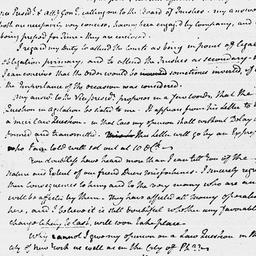 calling on the Board of Trustees - my answer
both are necessarily very concise, having been engag'd by Company, and
being pressed for Time - they are enclosed.
I regard my Duty to attend the Courts as being in point of legal
obligation primary, and to attend the Trustees as secondary - &
I can conceive that the order would be sometimes inverted, if
the Importance of the occasion was considered.
My answer to the Vice President proposes in a few words, that the
Question in agitation be stated to me. It appears from his Letter to be
a mere Law Question - in that case my opinion shall without Delay be
formed and transmitted. this Letter will go by an Express
who I am told will set out at 10 O'Cl.
You doubtless have heard more than I can tell You of the
Nature and Extent of our friend Duers Misfortunes. I sincerely regret
their consequences to him, and to the very many who are and
will be affected by them. They have affected all money operations
here, and I believe it is still doubtful whether any favorable
change, likely to last, will soon take place.
Why cannot I give my opinion on a Law Question in the
city of New York as well as in the City of Pha.?